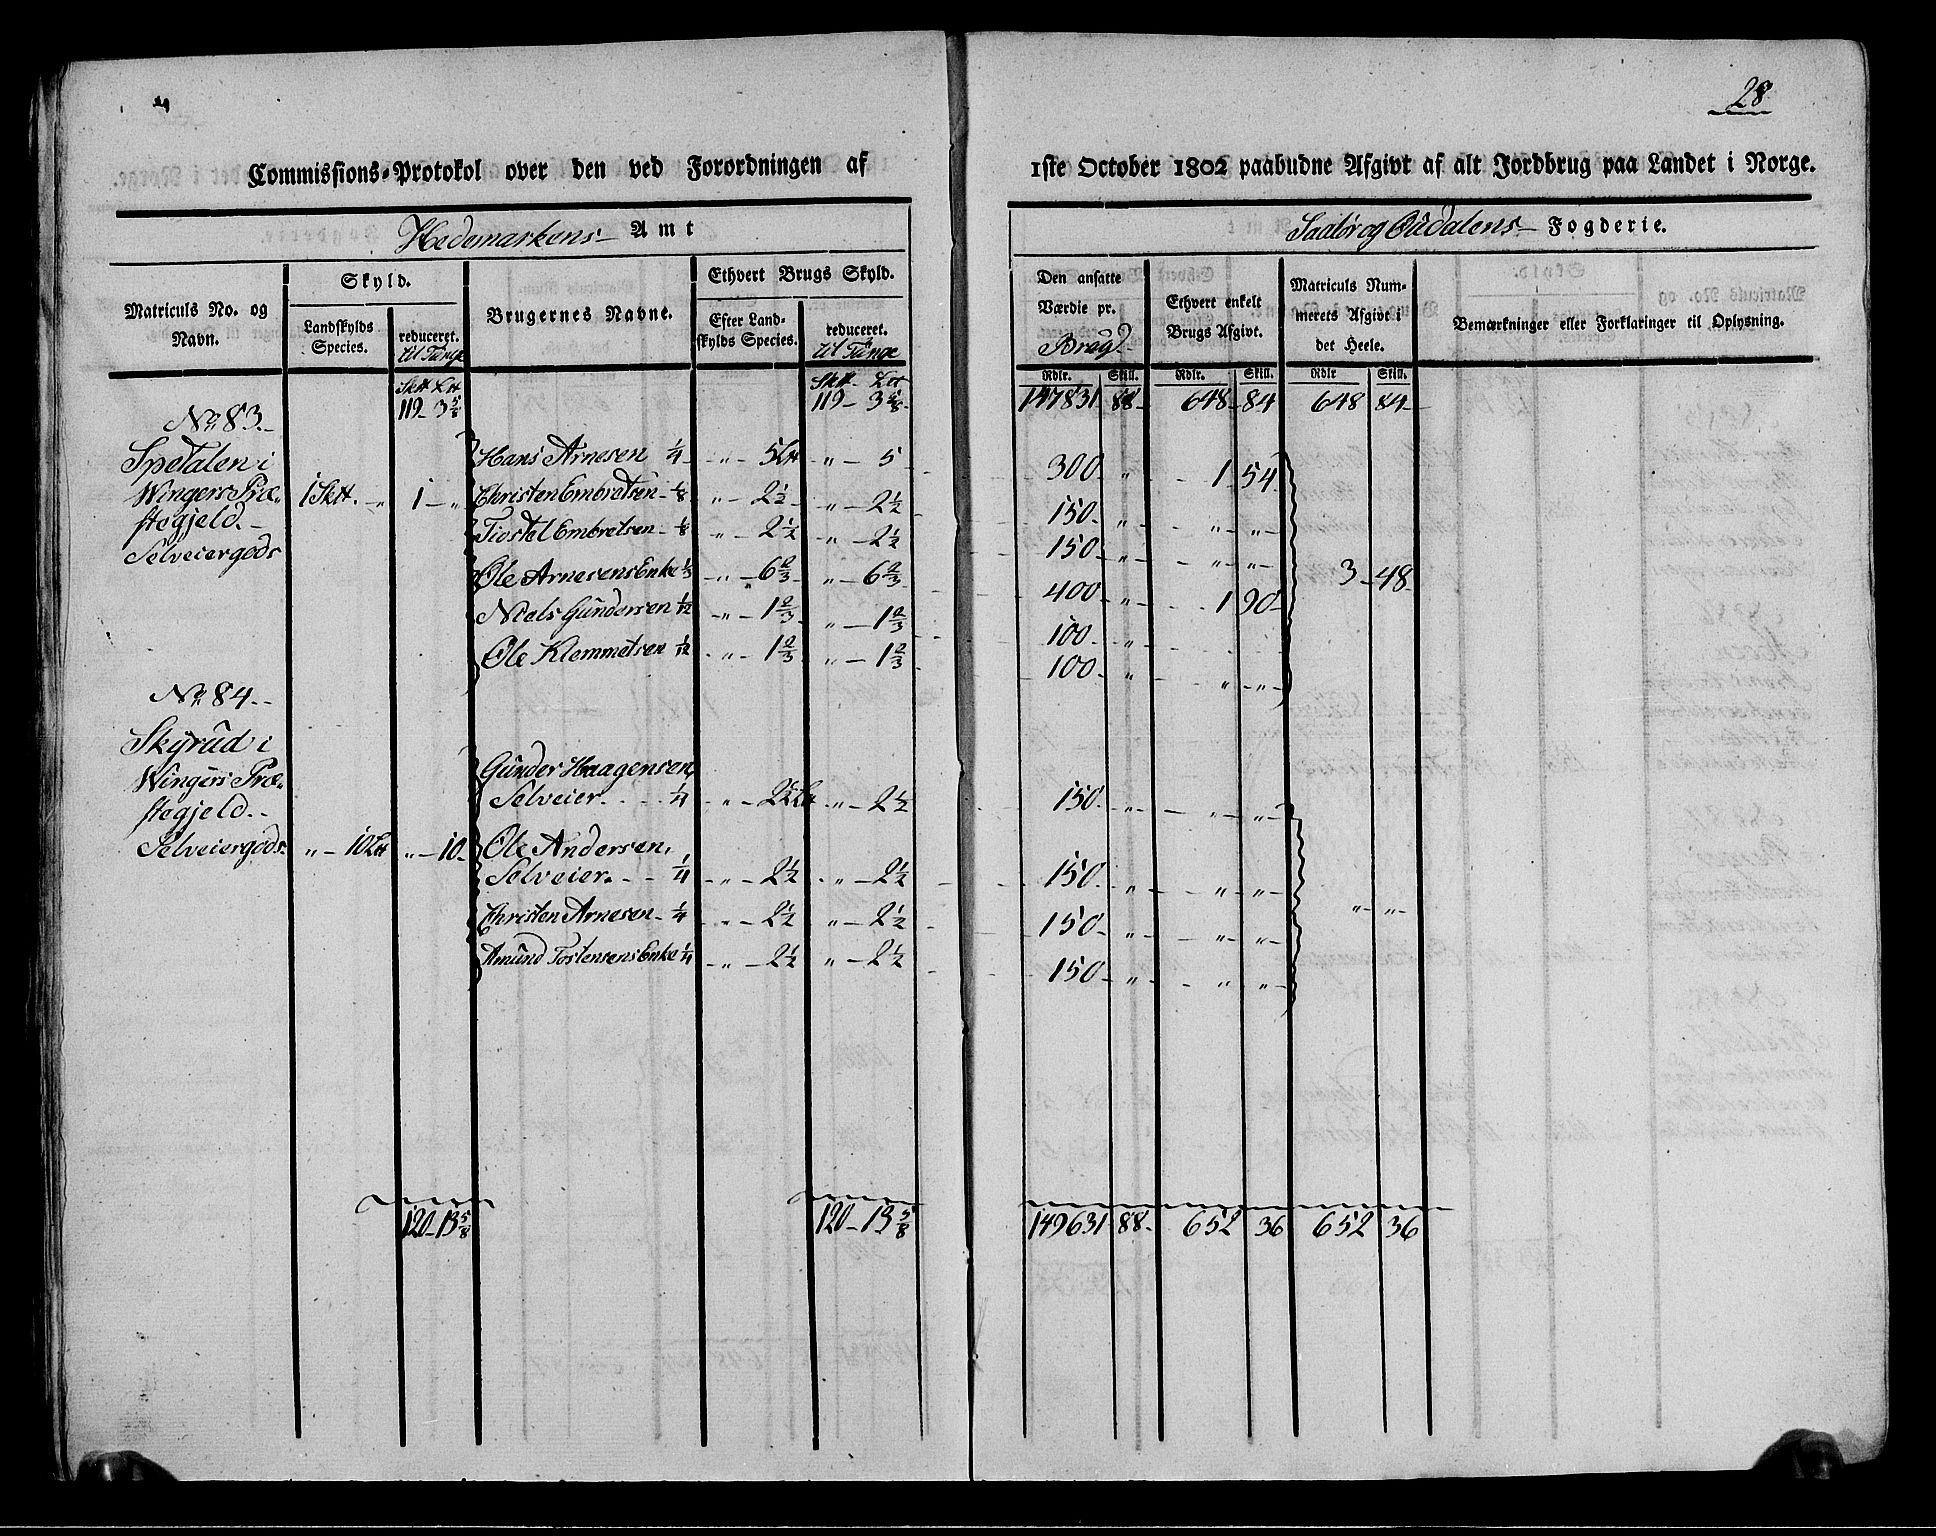 28
Commissions-Protokol over den ved Forordningen af 1ste October 1802 paabudne Afgivt af alt Jordbrug paa Landet i Norge.
Hedemarkens Amt
Soløer og Oudalens Fogderie.
Matriculs No. og Navn.
Skyld.
Landskylds Species.
reduceret. til Tunge
Brugernes Navne.
Ethvert Brugs Skyld.
Efter Landskylds Species.
reduceret. til Tunge
Den ansatte Værdie pr. Brug
Ethvert enkelt Brugs Afgivt.
Matriculs Nummerets Afgivt i det Heele.
Bemærkninger eller Forklaringer til Oplysning.
Rdlr. Skill. Rdlr. Skill. Rdlr Skill.
119 - 3 5/8 119 - 3 5/8 147831 88 648 84 648 84
No 83.
Spetalen i
Wingers Præ-
stegjeld.
Selveiergods
1 Skt. „ 1 „
Hans Arnesen 1/4 „ 5 Lt „ 5 300 „ 1 54
Christen Embretsen 1/8 „ 2 1/2 „ 2 1/2 150 „ „ „
Tiostel Embretsen 1/8 „ 2 1/2 „ 2 1/2 150 „ „ „
Ole Arnesens Enke 1/3 „ 6 2/3 „ 6 2/3 400 „ 1 90 3 48
Niels Gundersen 1/12 „ 1 2/3 „ 1 2/3 100 „
Ole Klemmetsen 1/12 „ 1 2/3 „ 1 2/3 100 „ „ „
No 84.
Skyrud i
Wingers Præ-
stegjeld.
Selveiergods „ 10 Lt „ 10
Gunder Haagensen,
Selveier 1/4 „ 2 1/2 Lt „ 2 1/2 150 „ „ „
Ole Andersen,
Selveier 1/4 „ 2 1/2 „ 2 1/2 150 „ „ „
Christen Arnesen 1/4 „ 2 1/2 „ 2 1/2 150 „ „ „ „ „
Amund Tostensens Enke 1/4 „ 2 1/2 „ 2 1/2 150 „ „ „
120 - 13 5/8 120 - 13 5/8 149631 88 652 36 652 36